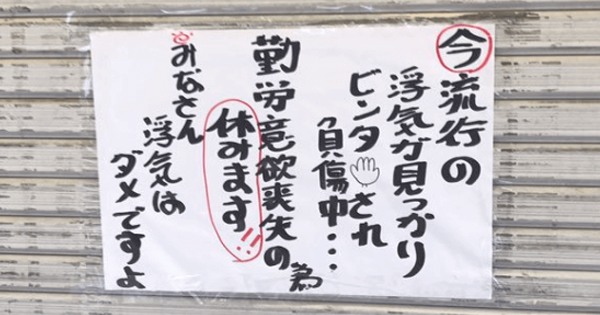 今流行の
浮気が見つかり
ビンタ✋され
負傷中…
勤労意欲喪失の為
休みます!!
みなさん
浮気は
ダメですよ